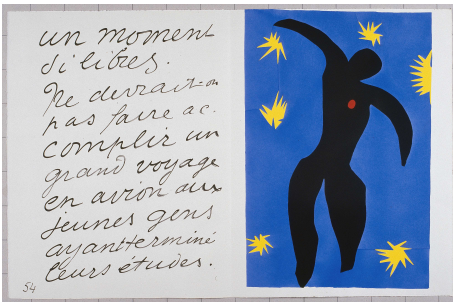 un moment
si libres.
Ne devrait-on
pas faire ac.
complir un
grand voyage
en avion aux
jeunes gens
ayant terminé
leurs études.
54